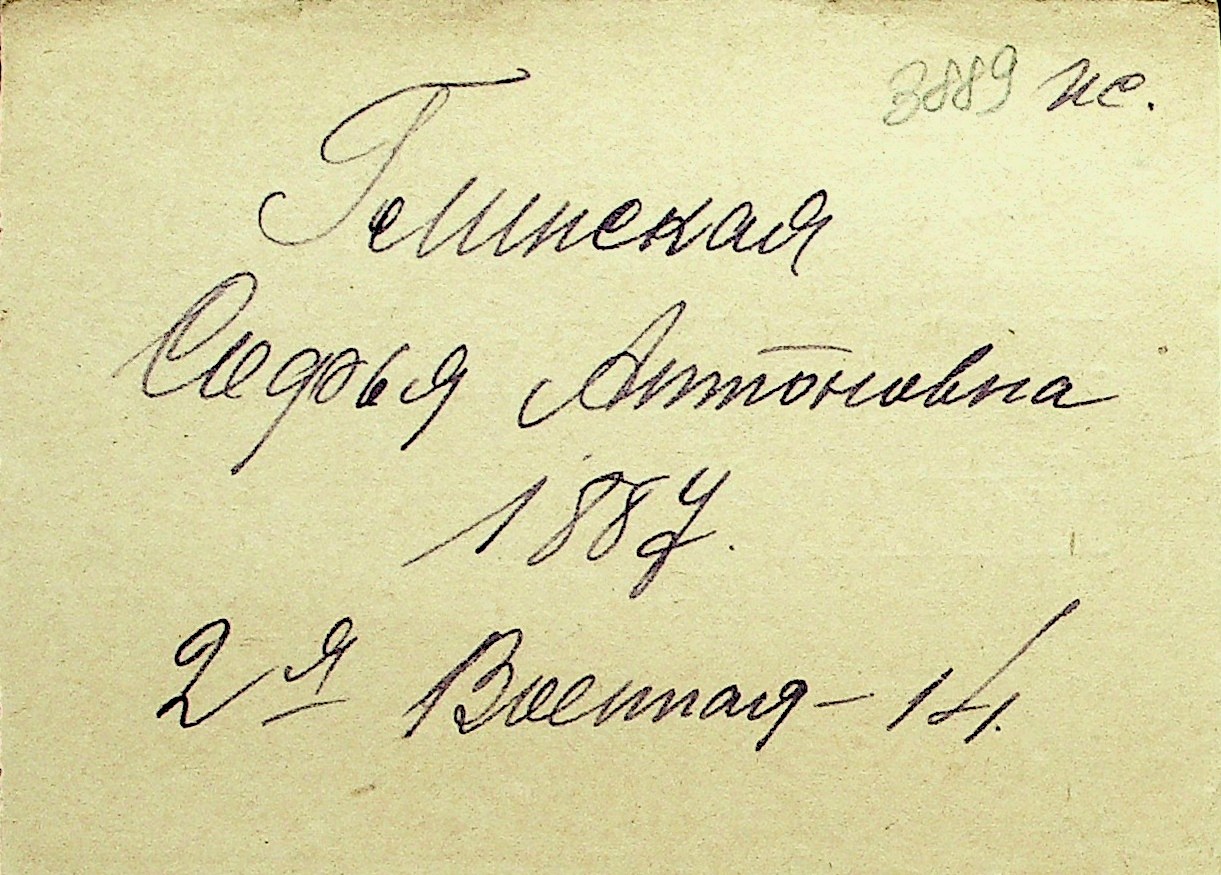 3889 ис.
Гелинская
Софья Антоновна
1887.
2я Военная – 14.